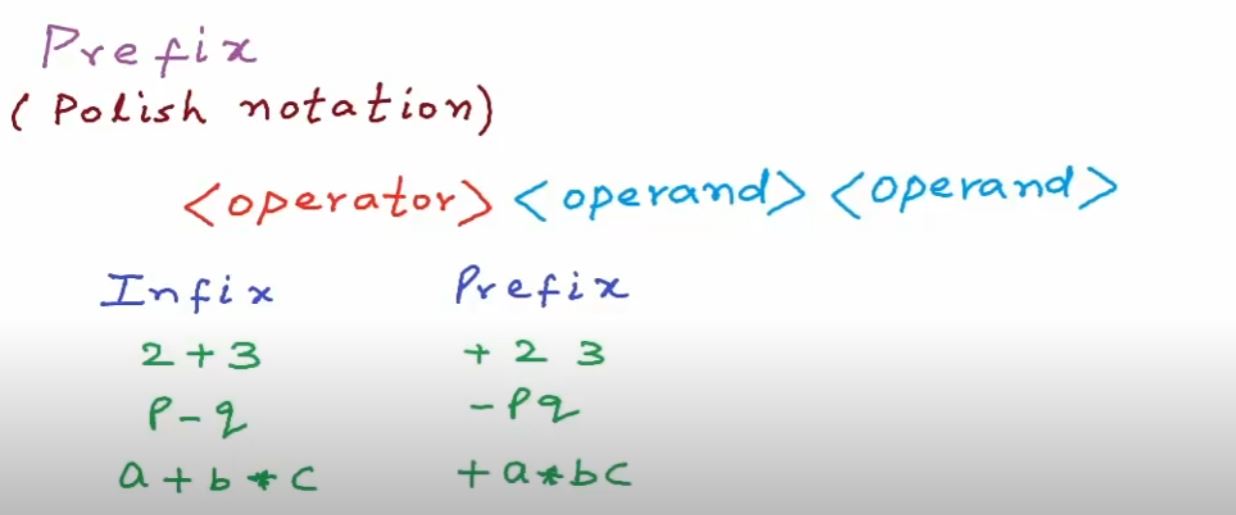 Prefix
(Polish notation)
<operator> <operand> <operand>
Infix Prefix
2+3 + 2 3
P-q -Pq
a+b*c +a*bc